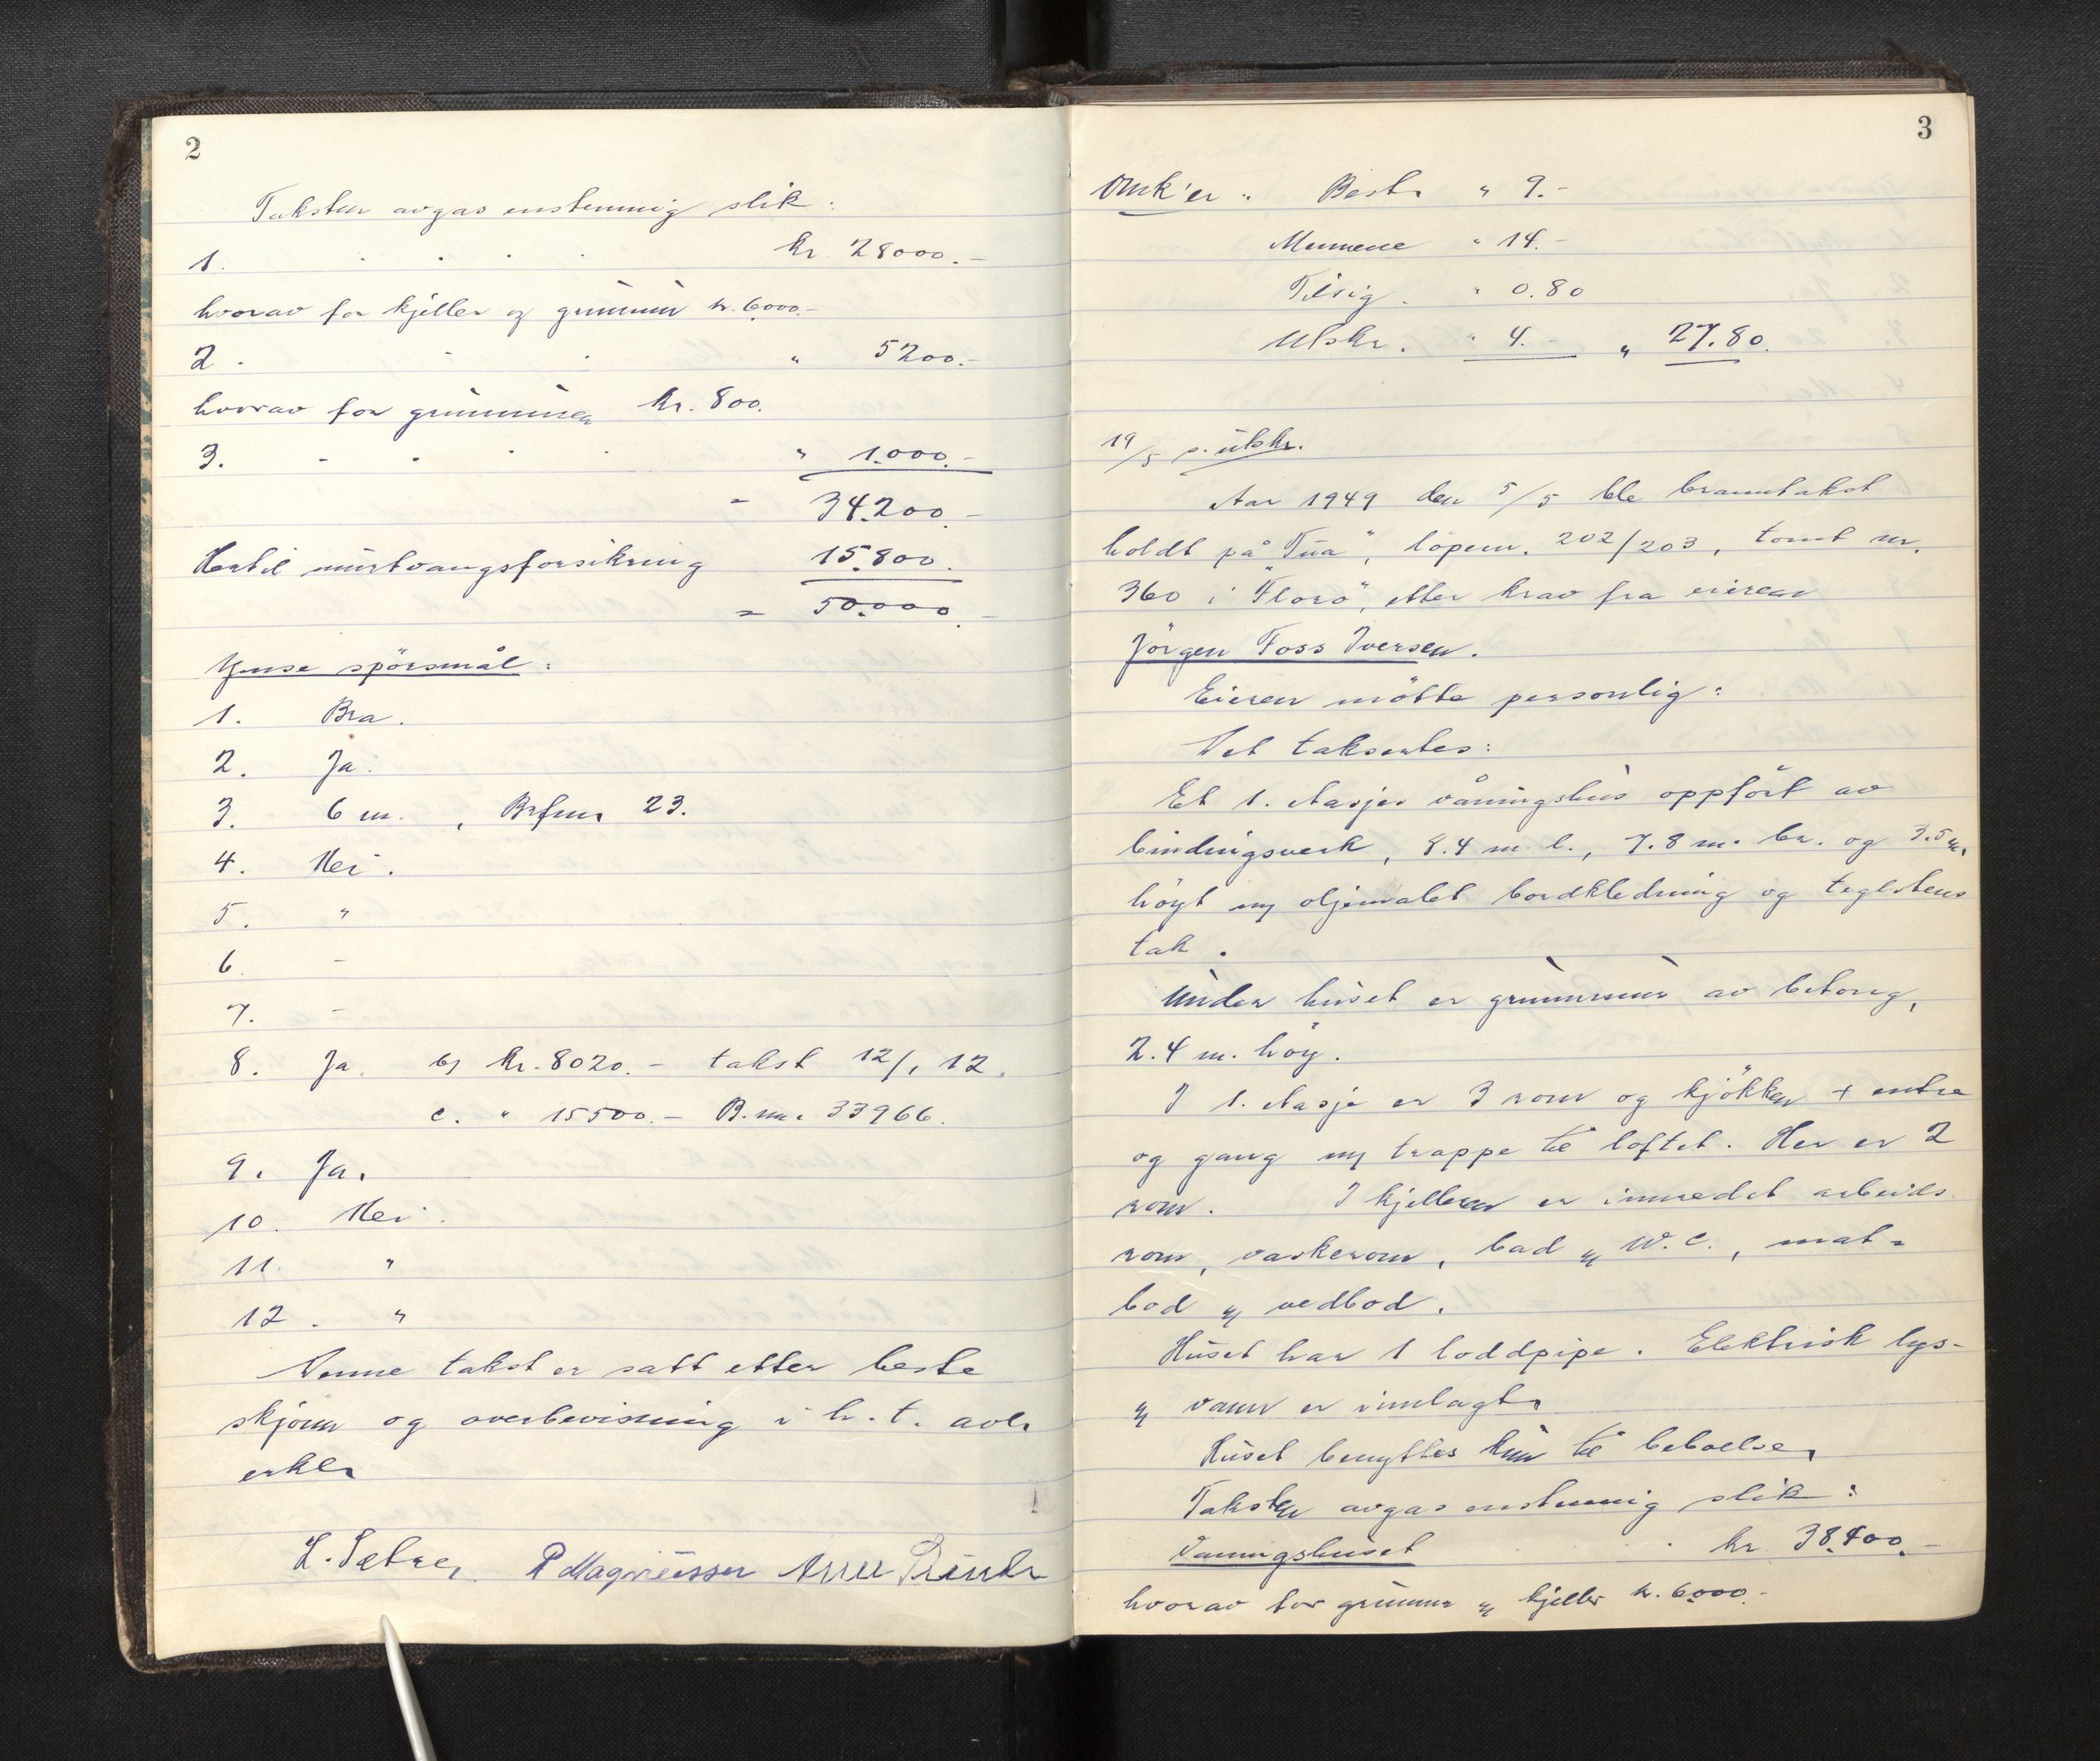 2
Taksten avgas enstemmig slik:
1. . . . . kr 28000.-
hvorav for kjeller og grunnmur kr. 6000.-
2. - . " 5200.-
hvorav for grunnmuren kr. 800.
3. - . . . " 1.000.-
= 34.200.-
Hertil murtvangsforsikring 15.800.
= 50.000.-
Ymse spörsmål:
1. Bra.
2. Ja.
3. 6 m. , Brfm. 23.
4. Nei.
5. "
6 -
7. -
8. Ja. b) kr. 8020.- takst 12/1 12.
c. " 15500.- B.nr. 33966.
9. Ja.
10. Nei.
11. "
12. "
Denne takst er satt etter beste
skjönn og overbevisning i h.t. avl.
erkl.
L. Sætre, P Magnussen
3
Omk'er: Best. " 9.-
Mennene " 14.-
Tilsig. " 0.80
Utskr. " 4.- " 27.80.
19/5 s. utskr.
Aar 1949 den 5/5 ble branntakst
holdt på "Tua", löpenr. 202/203, tomt nr.
360 i "Florö", etter krav fra eieren
Jörgen Foss Iversen.
Eieren mötte personlig:
Det taksertes:
Et 1. etasjes våningshus oppfört av
bindingsverk, 8.4 m l., 7.8 m. br. og 3.5 m.
höyt m/ oljemalet bordkledning og teglstens
tak.
Under huset er grunnmur av betong,
2.4 m. höy.
I 1. etasje er 3 rom og kjökken + entre
og gang m/ trappe til loftet. Her er 2
rom. I kjelleren er innredet arbeids
rom, vaskerom, bad og W.C., mat=
bod og vedbod.
Huset har 1 loddpipe. Elektrisk lys-
og vann er innlagt.
Huset benyttes kun til beboelse.
Taksten avgas enstemmig slik:
Vaningshuset . . kr. 38.400.-
hvorav for grunnmur og kjeller kr. 6000.-